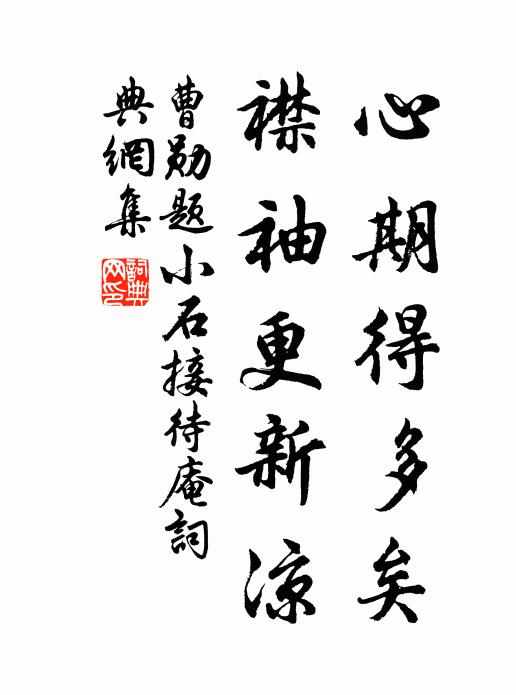 心期得多矣
襟袖更新涼
曹勛題小石接待庵詞
典網集
詞典网印